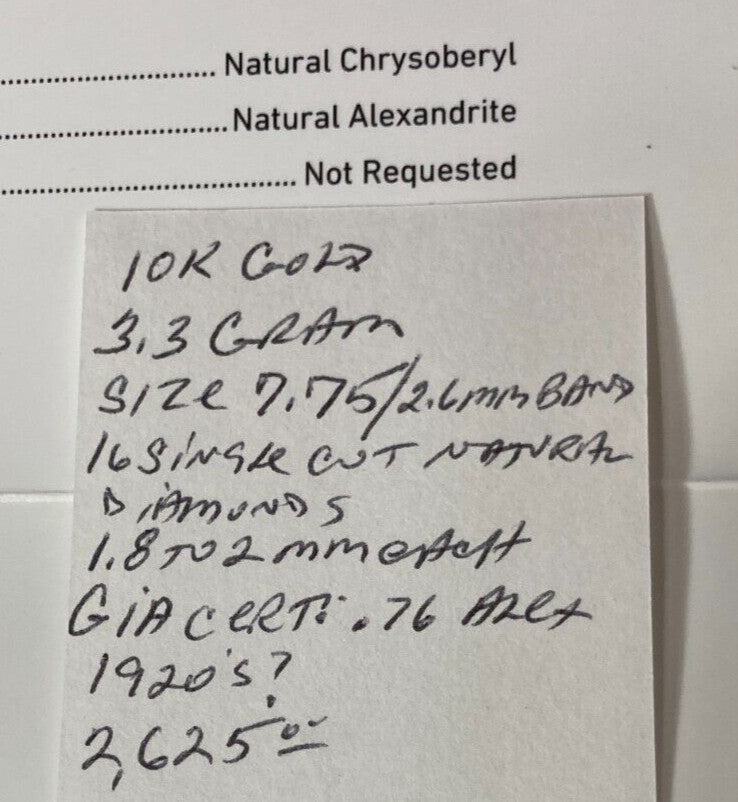 ................................ Natural Chrysoberyl
................................ Natural Alexandrite
................................ Not Requested
10K GOLD
3.3 GRAM
SIZE 7.75/2.6mm BAND
16 SINGLE CUT NATURAL
DIAMONDS
1.8 TO 2 mm EACH
GIA CERT: .76 ALEX
1920's?
2,625.00